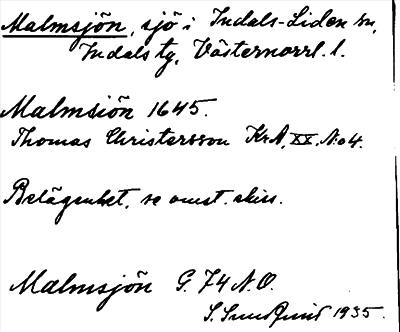 Malmsjön, sjö i Indals-Liden sn,
Indals tg, Västernorrl. l.
Malmsiön 1645.
Thomas Christersson KrA, XX, No 4.
Belägenhet, se omst. skiss.
Malmsjön G. 74 N.O.
S. Sundquist 1935.